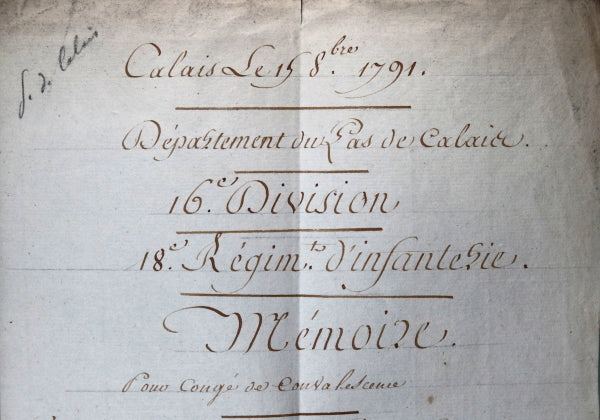 Calais Le 15 8.bre 1791.
Département du Pas de Calais.
16.e Division
18.e Régim.t d'infanterie.
Mémoire.
Pour Congé de Convalescence